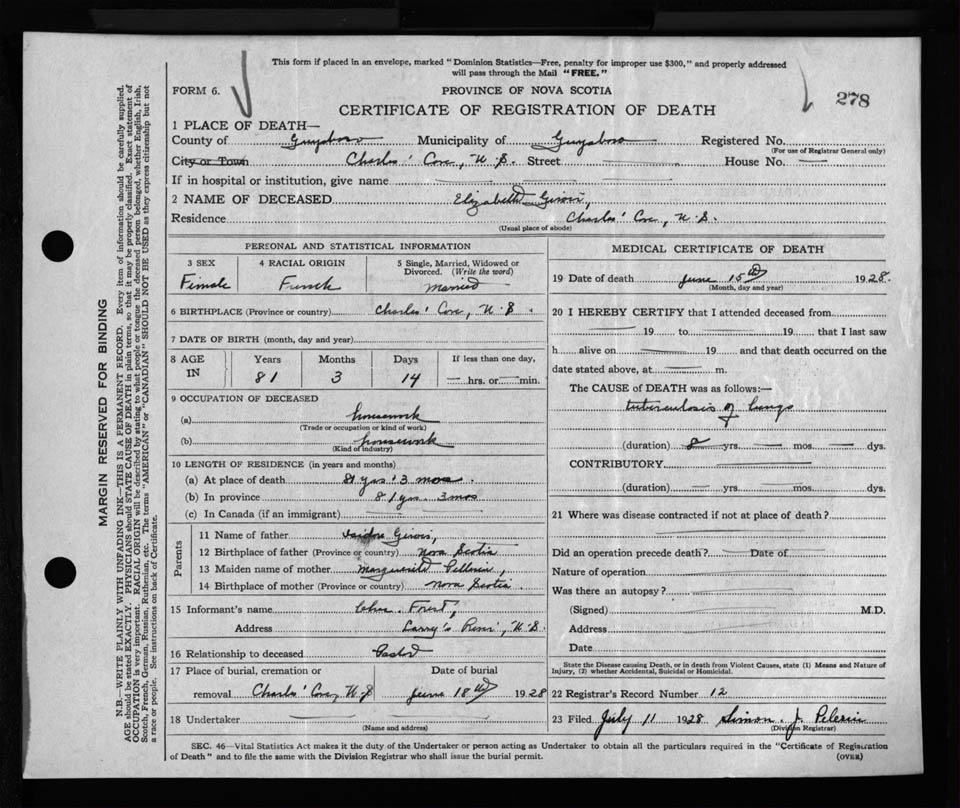 This form if placed in an envelope, marked "Dominion Statistics—Free, penalty for improper use $300," and properly addressed
will pass through the Mail "FREE."
FORM 6. PROVINCE OF NOVA SCOTIA 278
CERTIFICATE OF REGISTRATION OF DEATH
1 PLACE OF DEATH—
County of Guysboro Municipality of Guysboro Registered No.
(For use of Registrar General only)
City or Town Charles' Cove, N.S. Street House No.
If in hospital or institution, give name
2 NAME OF DECEASED Elizabeth Giroir,
Residence Charles' Cove, N.S.
(Usual place of abode)
PERSONAL AND STATISTICAL INFORMATION
3 SEX 4 RACIAL ORIGIN 5 Single, Married, Widowed or
Divorced. (Write the word)
Female French Married
6 BIRTHPLACE (Province or country) Charles' Cove, N.S.
7 DATE OF BIRTH (month, day and year)
8 AGE IN Years Months Days If less than one day,
81 3 14 hrs. or min.
9 OCCUPATION OF DECEASED
(a) housework
(Trade or occupation or kind of work)
(b) housework
(Kind of industry)
10 LENGTH OF RESIDENCE (in years and months)
(a) At place of death 81 yrs. 3 mos.
(b) In province 81 yrs. 3 mos
(c) In Canada (if an immigrant)
Parents
11 Name of father Isidore Girois,
12 Birthplace of father (Province or country) Nova Scotia
13 Maiden name of mother Marguerite Pellerin,
14 Birthplace of mother (Province or country) Nova Scotia
15 Informant's name Forest,
Address Larry's River, N.S.
16 Relationship to deceased Pastor
17 Place of burial, cremation or Date of burial
removal Charles' Cove, N.S June 18th 1928
18 Undertaker
(Name and address)
MEDICAL CERTIFICATE OF DEATH
19 Date of death June 15th 1928.
(Month, day and year)
20 I HEREBY CERTIFY that I attended deceased from
19 to 19 that I last saw
h alive on 19 and that death occurred on the
date stated above, at m.
The CAUSE of DEATH was as follows:—
tuberculosis of lungs
(duration) 2 yrs. mos. dys.
CONTRIBUTORY
(duration) yrs. mos. dys.
21 Where was disease contracted if not at place of death?
Did an operation precede death? Date of
Nature of operation
Was there an autopsy?
(Signed) M.D.
Address
Date
State the Disease causing Death, or in death from Violent Causes, state (1) Means and Nature of
Injury, (2) whether Accidental, Suicidal or Homicidal.
22 Registrar's Record Number 12
23 Filed July 11 1928 Simon J. Pelerin
(Division Registrar)
SEC. 46—Vital Statistics Act makes it the duty of the Undertaker or person acting as Undertaker to obtain all the particulars required in the "Certificate of Registration
of Death" and to file the same with the Division Registrar who shall issue the burial permit. (OVER)
MARGIN RESERVED FOR BINDING
N.B.—WRITE PLAINLY WITH UNFADING INK—THIS IS A PERMANENT RECORD. Every item of information should be carefully supplied.
AGE should be stated EXACTLY. PHYSICIANS should STATE CAUSE OF DEATH in plain terms, so that it may be properly classified. Exact statement of
OCCUPATION is very important. RACIAL ORIGIN will be described by stating to what people or tongue the deceased person belonged, whether English, Irish,
Scotch, French, German, Russian, Ruthenian, etc. The terms "AMERICAN" or "CANADIAN" SHOULD NOT BE USED as they express citizenship but not
a race or people. See instructions on back of Certificate.